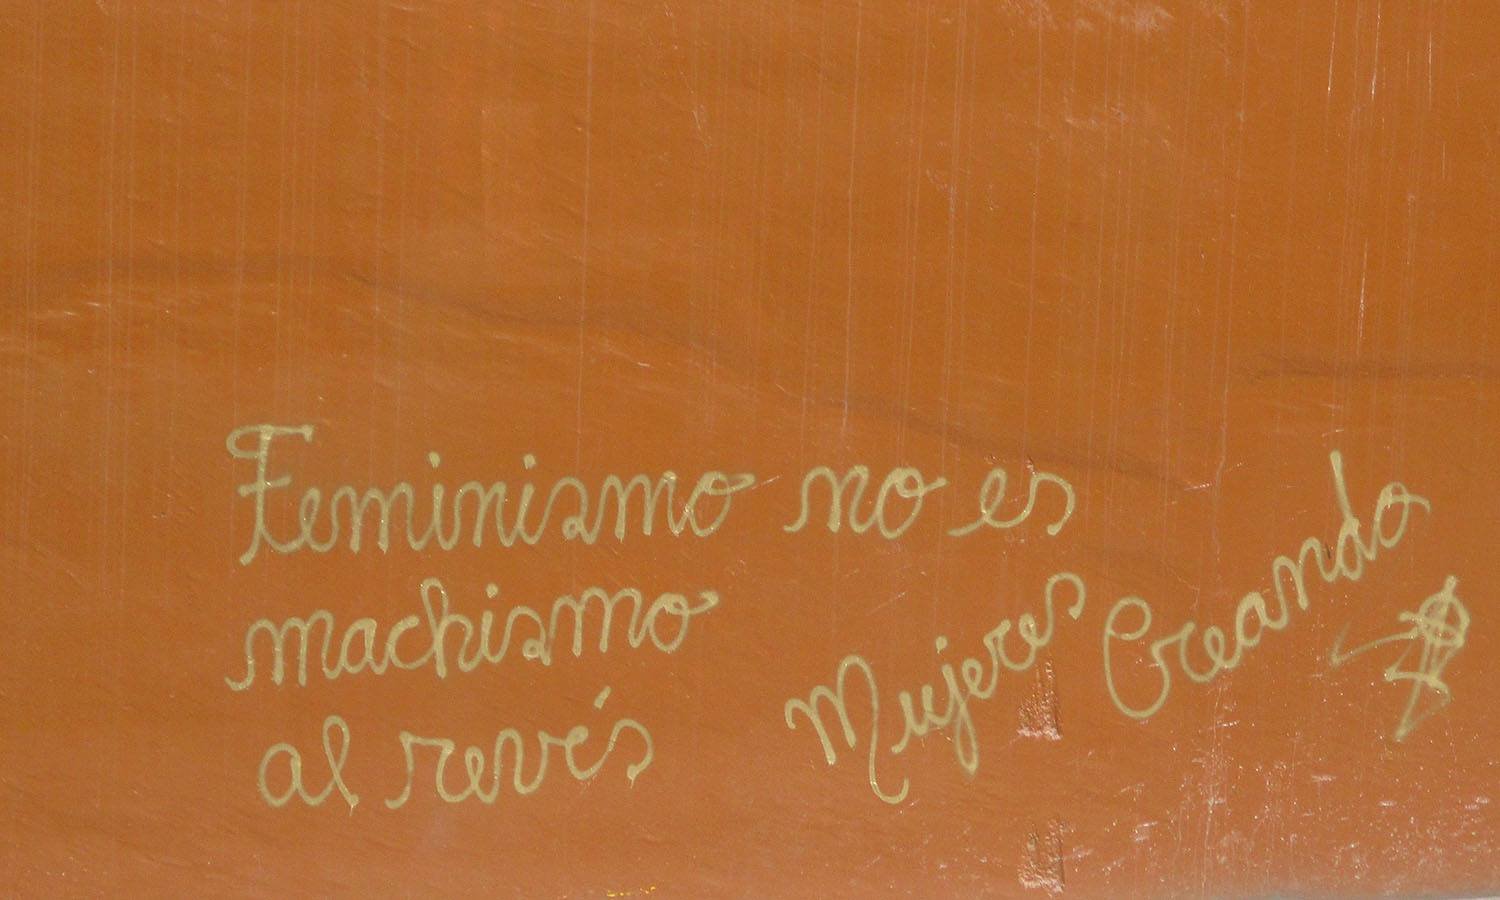 Feminismo no es
machismo
al revés
Mujeres Creando